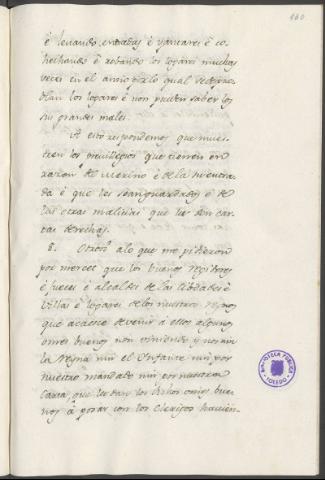 160
é levando entradas é yantares é co-
hechando é robando los logares muchas
veces en el anno por lo qual se despue-
blan los logares é non pueden saber los
sus grandes males.
A esto respondemos que mues-
tren los previllegios que tienen en
razon de merino é de la su entra-
da é que les sean guardados é de
las otras malicias que les den car-
tas derechas.
8. Otrosí a lo que me pidieron
por merced que los buenos
é jueces é alcaldes de las cibdades é
villas é logares de los nuestros regnos
que acaece de venir á ellos algunos
omes buenos non viniendo y nos nin
la Reyna nin el Infante nin por
nuestro mandado nin por nuestra
carta, que les dan los dichos omes bue-
nos á posar con los clerigos havien-
BIBLIOTECA PUBLICA
TOLEDO